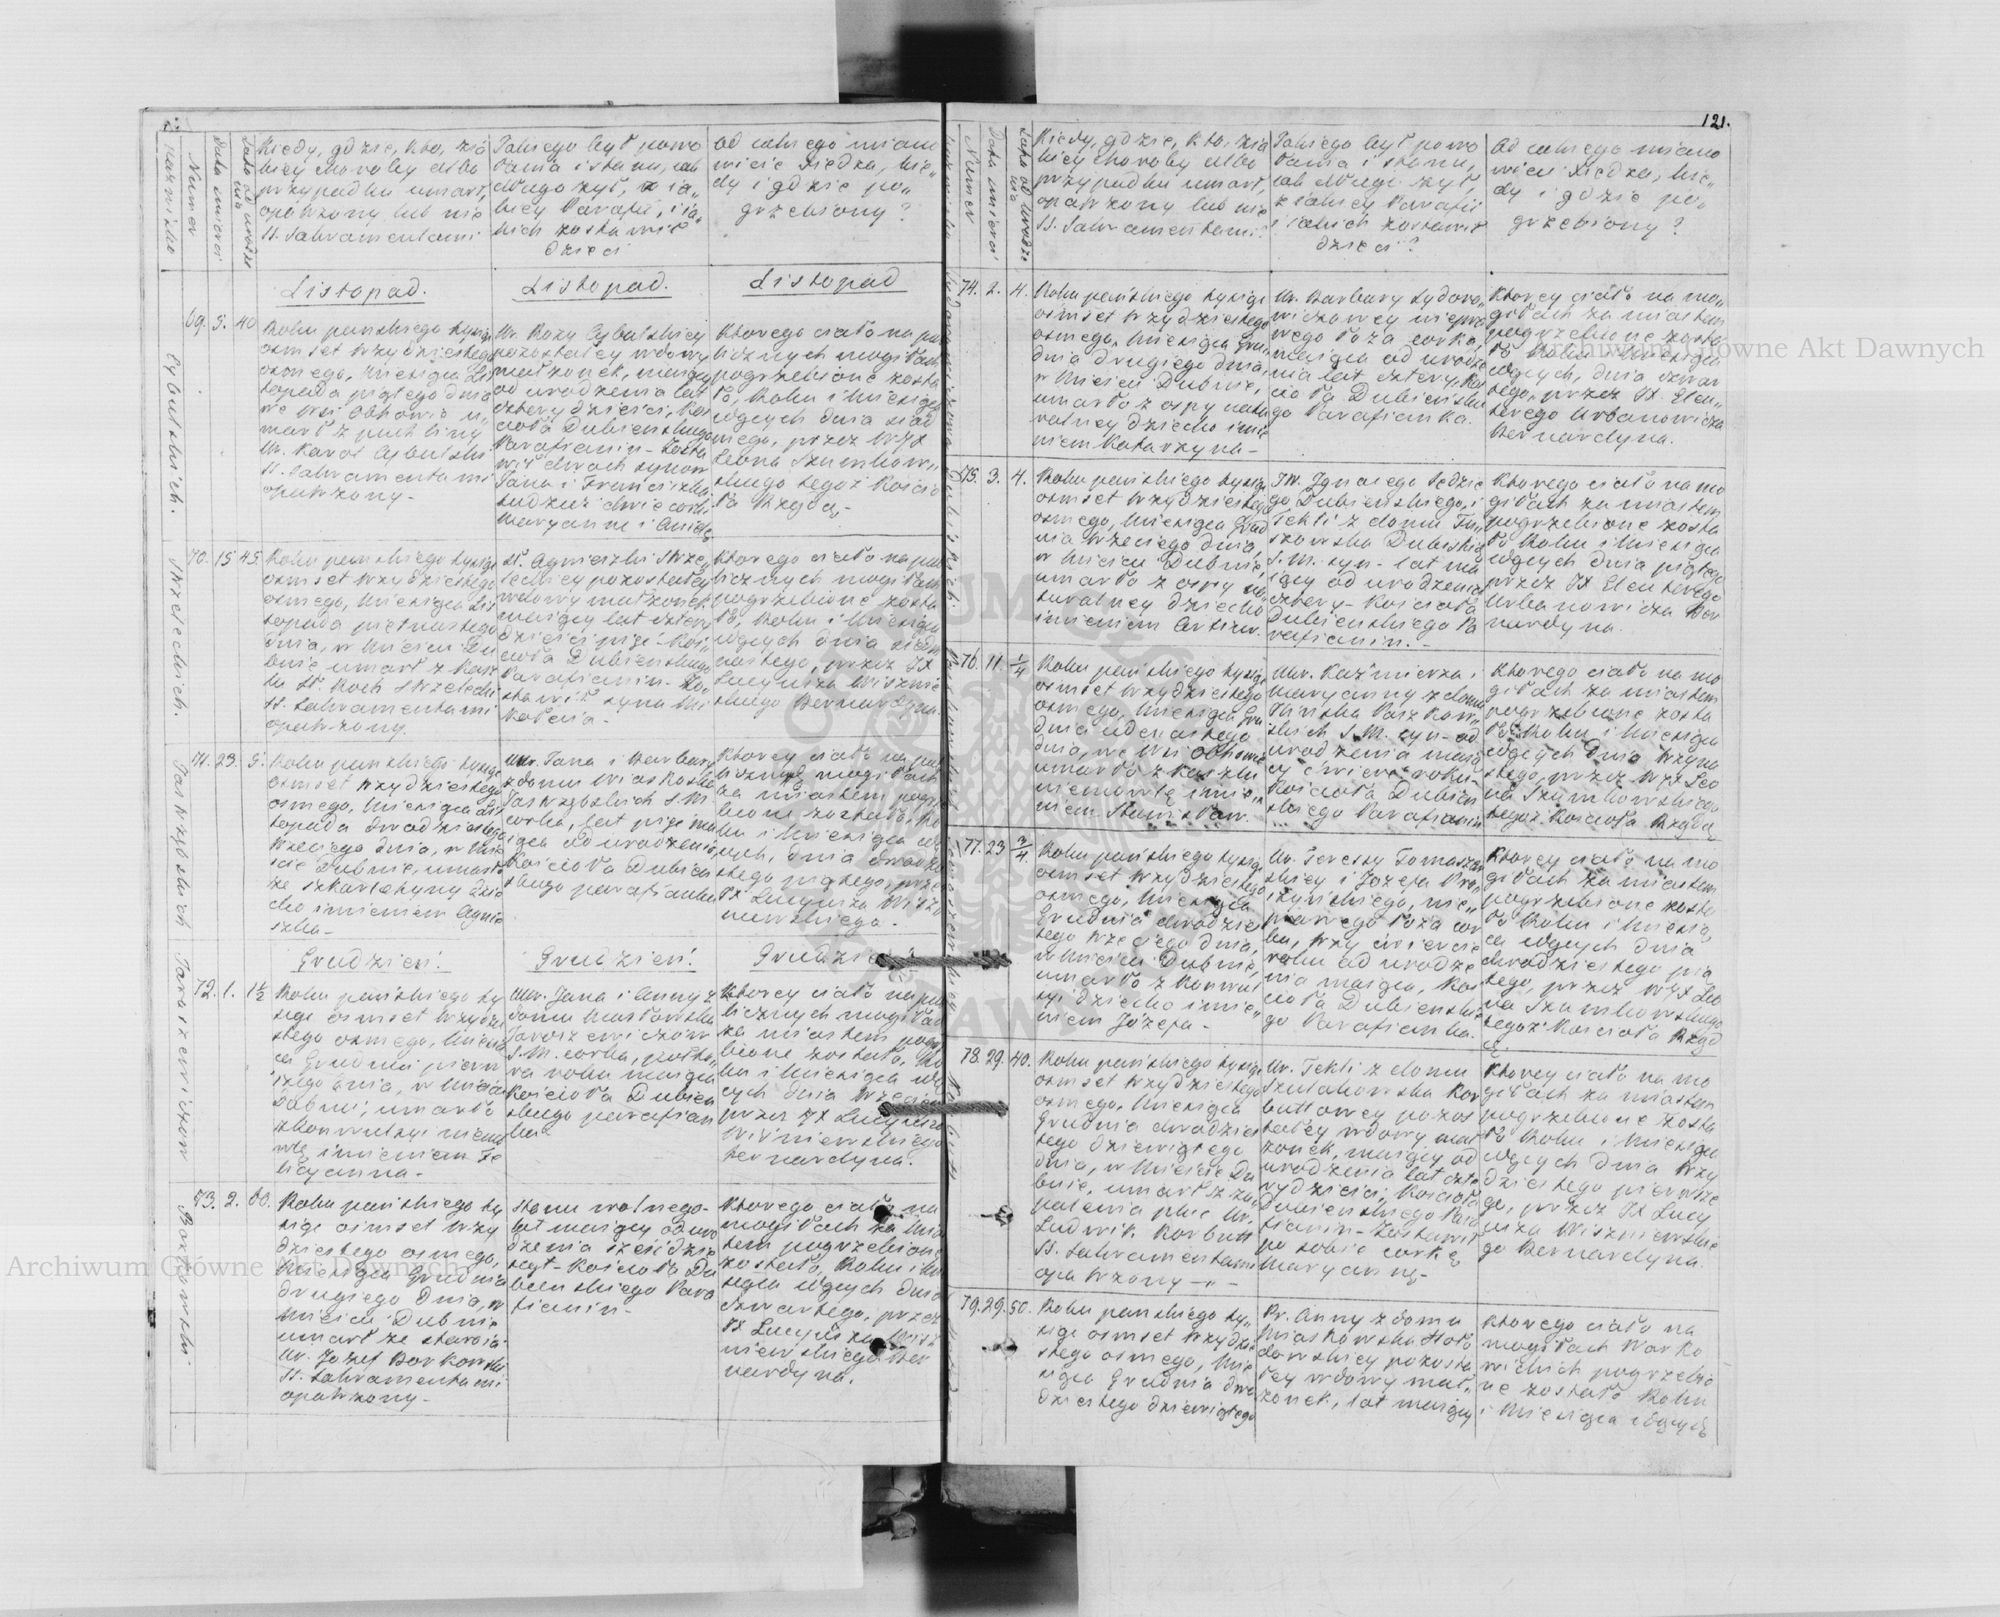 121.
Nazwisko
Numer
Data śmierci
Lata od urodzenia
Kiedy, gdzie, kto, zia
kiey choroby albo
przypadku umarł,
opatrzony lub nie
SS. Sakramentami
Jakiego był powo
łania i stanu, iak
długo żył, z ia„
kiey Parafii, i ia„
kich zostawił
dzieci
Od iakiego miano
wicie Xiędza, kie„
dy i gdzie po„
grzebiony?
Listopad.
Listopad.
Listopad
69. 5. 40
Cybulskich.
Roku pańskiego tysiąc
osmset trzydziestego
osmego, Miesiąca Lis
topada piątego dnia
we Wsi
u„
marł z puchliny
Ur. Karol Cybulski
SS. Sakramentami
opatrzony -
Ur. Rozy Cybulskiey
pozostałey wdowy
małżonek, maiący
od urodzenia lat
cztery dzieści, Koś
cioła Dubienskiego
Parafianin - Zosta
wił dwóch synow
Jana i Franciszka
tudzież dwie corki
Maryannę i Anielę
Ktorego ciało na pu
blicznych mogiłach
pogrzebione zosta
ło, Roku i Miesiąca
idących dnia siód
mego, przez WJX
Leona Szumkow„
skiego tegoż Kościo
ła Rządcę -
70. 15 45.
Strzeleckich.
Roku pańskiego tysiąc
osmset trzydziestego
osmego, Miesiąca Lis
topada piętnastego
dnia, w Mieście Du
bnie umarł z kasz
lu Sł. Roch Strzelecki
SS. Sakramentami
opatrzony.
Sł. Agnieszki Strze„
leckiey pozostałey
wdowy małżonek
maiący lat cztery
dzieści pięć - Koś„
cioła Dubienskiego
Parafianin - Zo„
stawił syna Mi
kołaia -
Ktorego ciało na pu
blicznych mogiłach
pogrzebione zosta
ło, Roku i Miesiąca
idących dnia siedm
nastego, przez JX
Lucyusza Wisznie
skiego Bernardyna.
71. 23. 5.
Jastrzębskich
Roku pańskiego tysiąc
osmset trzydziestego
osmego, Miesiąca Lis
topada dwudziestego
trzeciego dnia, w Mie
ście Dubnie, umarło
ze szkarlatyny dzie
cko imieniem Agnie
szka -
Ur. Jana i Barbary
z domu
Jastrzębskich S.M.
corka, lat pięć ma
iąca od urodzenia,
Kościoła Dubien
skiego parafianka
Ktorey ciało na pu
blicznych mogiłach
za miastem pogrze
bione zostało, Ro
ku i Miesiąca idą
cych, dnia dwudzie
stego piątego, przez
JX Lucyusza Wisz
niewskiego -
Grudzień!
Grudzień!
Grudzień
72. 1. 1½
Jaroszewiczow
Roku pańskiego ty
siąc osmset trzydzie
stego osmego, Miesią
ca Grudnia pierw
szego dnia, w Mieście
Dubnie, umarło
z konwulsyi niemo
wlę imieniem Fe
licyanna -
Ur. Jana i Anny z
domu Masłowska
Jaroszewiczów
S.M. corka, połto„
ra roku maiąca
Kościoła Dubien
skiego parafian
ka -
Ktorey ciało na pu
blicznych mogiłach
za miastem pogrze
bione zostało, Ro
ku i Miesiąca idą
cych dnia trzeciego
przez JX Lucyusza
Wiśniewskiego
Bernardyna.
73. 2. 60.
Borkowski
Roku pańskiego ty
siąc osmset trzy
dziestego osmego,
Miesiąca Grudnia
drugiego dnia, w
Mieście Dubnie
umarł ze starości
Ur. Jozef Borkowski
SS. Sakramentami
opatrzony -
Stanu wolnego -
lat maiący od uro
dzenia sześćdzie
siąt - Kościoła Du
bienskiego Para
fianin -
Ktorego ciało na
mogiłach za Mia
stem pogrzebione
zostało, Roku i Mie
siąca idących dnia
czwartego, przez
JX Lucyusza Wisz
niewskiego Ber
nardyna.
Numer
Data śmierci
Lata od urodze
nia
Kiedy, gdzie, kto, zia
kiey choroby albo
przypadku umarł,
opatrzony lub nie
SS. Sakramentami?
Jakiego był powo
łania i stanu,
iak długo żył,
z iakiey Parafii
i iakich zostawił
dzieci?
Od iakiego miano
wicie Xiędza, kie„
dy i gdzie po„
grzebiony?
74. 2. 4.
Roku pańskiego tysiąc
osmset trzydziestego
osmego, Miesiąca Gru„
dnia drugiego dnia,
w Mieście Dubnie,
umarło z ospy natu
ralney dziecko imie
niem Katarzyna -
Ur. Barbary Sydoro„
wiczowey niepra
wego łoża corka,
maiąca od urodze
nia lat cztery, Koś
cioła Dubienskie
go Parafianka.
Ktorey ciało na mo„
giłach za miastem
pogrzebione zosta
ło Roku i Miesiąca
idących, dnia czwar
tego, przez JX. Eleu„
terego Urbanowicza
Bernardyna.
75. 3. 4.
Roku pańskiego tysiąc
osmset trzydziestego
osmego, Miesiąca Grud
nia trzeciego dnia,
w Mieście Dubnie,
umarło z ospy na„
turalney dziecko
imieniem Artur.
JW. Ignacego Sędzie
go Dubienskiego, i
Tekli z domu
S.M. syn - lat ma
iący od urodzenia
cztery - Kościoła
Dubienskiego Pa
rafianin. -
Ktorego ciało na mo
giłach za miastem
pogrzebione zosta
ło Roku i Miesiąca
idących dnia piątego
przez JX Eleuterego
Urbanowicza Ber
nardyna.
76. 11. ¼
Roku pańskiego tysiąc
osmset trzydziestego
osmego, Miesiąca Gru
dnia iedenastego
dnia, we Wsi
umarło z kaszlu
niemowlę imie„
niem Stanisław.
Ur. Kazimierza i
Maryanny z domu
Ilinska Paszkow„
skich S.M. syn - od
urodzenia maią
cy ćwierć roku -
Kościoła Dubien
skiego Parafianin
Ktorego ciało na mo
giłach za miastem
pogrzebione zosta
ło Roku i Miesiąca
idących dnia trzyna
stego, przez WJX Leo
na Szumkowskiego
tegoż Kościoła Rządcę
77. 23 ¾
Roku pańskiego tysiąc
osmset trzydziestego
osmego, Miesiąca
Grudnia dwudzies
tego trzeciego dnia,
w Mieście Dubnie,
umarło z konwul
syi dziecko imie„
niem Józefa -
Ur. Teresy Tomaszew
skiey i Jozefa
nie„
prawego łoża cor
ka, trzy ćwiercie
roku od urodze
nia maiąca, Koś
cioła Dubienskie
go Parafianka.
Ktorey ciało na mo
giłach za miastem
pogrzebione zosta
ło Roku i Miesią
ca idących dnia
dwudziestego pią
tego, przez WJX Leo
na Szumkowskiego
tegoż Kościoła Rząd
cę.
78. 29. 40.
Roku pańskiego tysiąc
osmset trzydziestego
osmego, Miesiąca
Grudnia dwudzies
tego dziewiątego
dnia, w Mieście Du
bnie, umarł z za„
palenia płuc Ur.
Ludwik Korbutt
SS. Sakramentami
opatrzony - „ -
Ur. Tekli z domu
Kor
buttowey pozos
tałey wdowy mał
żonek, maiący od
urodzenia lat czte
rydzieści, Kościoła
Dubienskiego Para
fianin - Zostawił
po sobie corkę
Maryannę -
Ktorey ciało na mo
giłach za miastem
pogrzebione zosta
ło Roku i Miesiąca
idących dnia trzy
dziestego pierwsze
go, przez JX Lucy
usza Wiszniewskie
go Bernardyna.
79. 29. 50.
Roku pańskiego ty„
siąc osmset trzydzie
stego osmego, Mie
siąca Grudnia dwu
dziestego dziewiątego
Ur. Anny z domu
Hoło
dowskiey pozosta
łey wdowy mał„
żonek, lat maiący
Ktorego ciało na
mogiłach
pogrzebio
ne zostało Roku
i Miesiąca idących
Archiwum Główne Akt Dawnych
Archiwum Główne Akt Dawnych